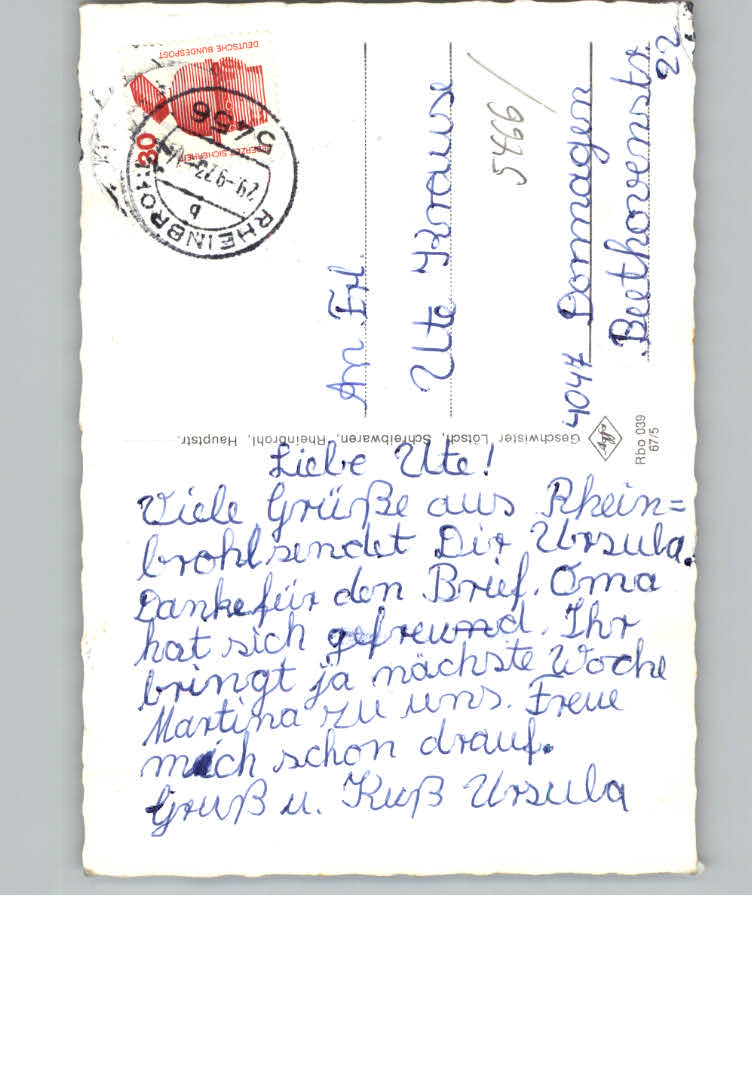 Liebe Ute!
Viele Grüße aus Rhein=
brohl sendet Dir Ursula.
Danke für den Brief. Oma
hat sich gefreund. Ihr
bringt ja nächste Woche
Martina zu uns. Freue
mich schon drauf.
Gruß u. Kuß Ursula
An Frl.
Ute Krause
5466
4047 Dormagen
Beethovenstr.
22
Geschwister Lötsch, Schreibwaren, Rheinbrohl, Hauptstr.
Rbo 039
67/5
DEUTSCHE BUNDESPOST
JEDERZEIT SICHERHEIT
30
5456
29.-9.73
b
RHEINBROHL